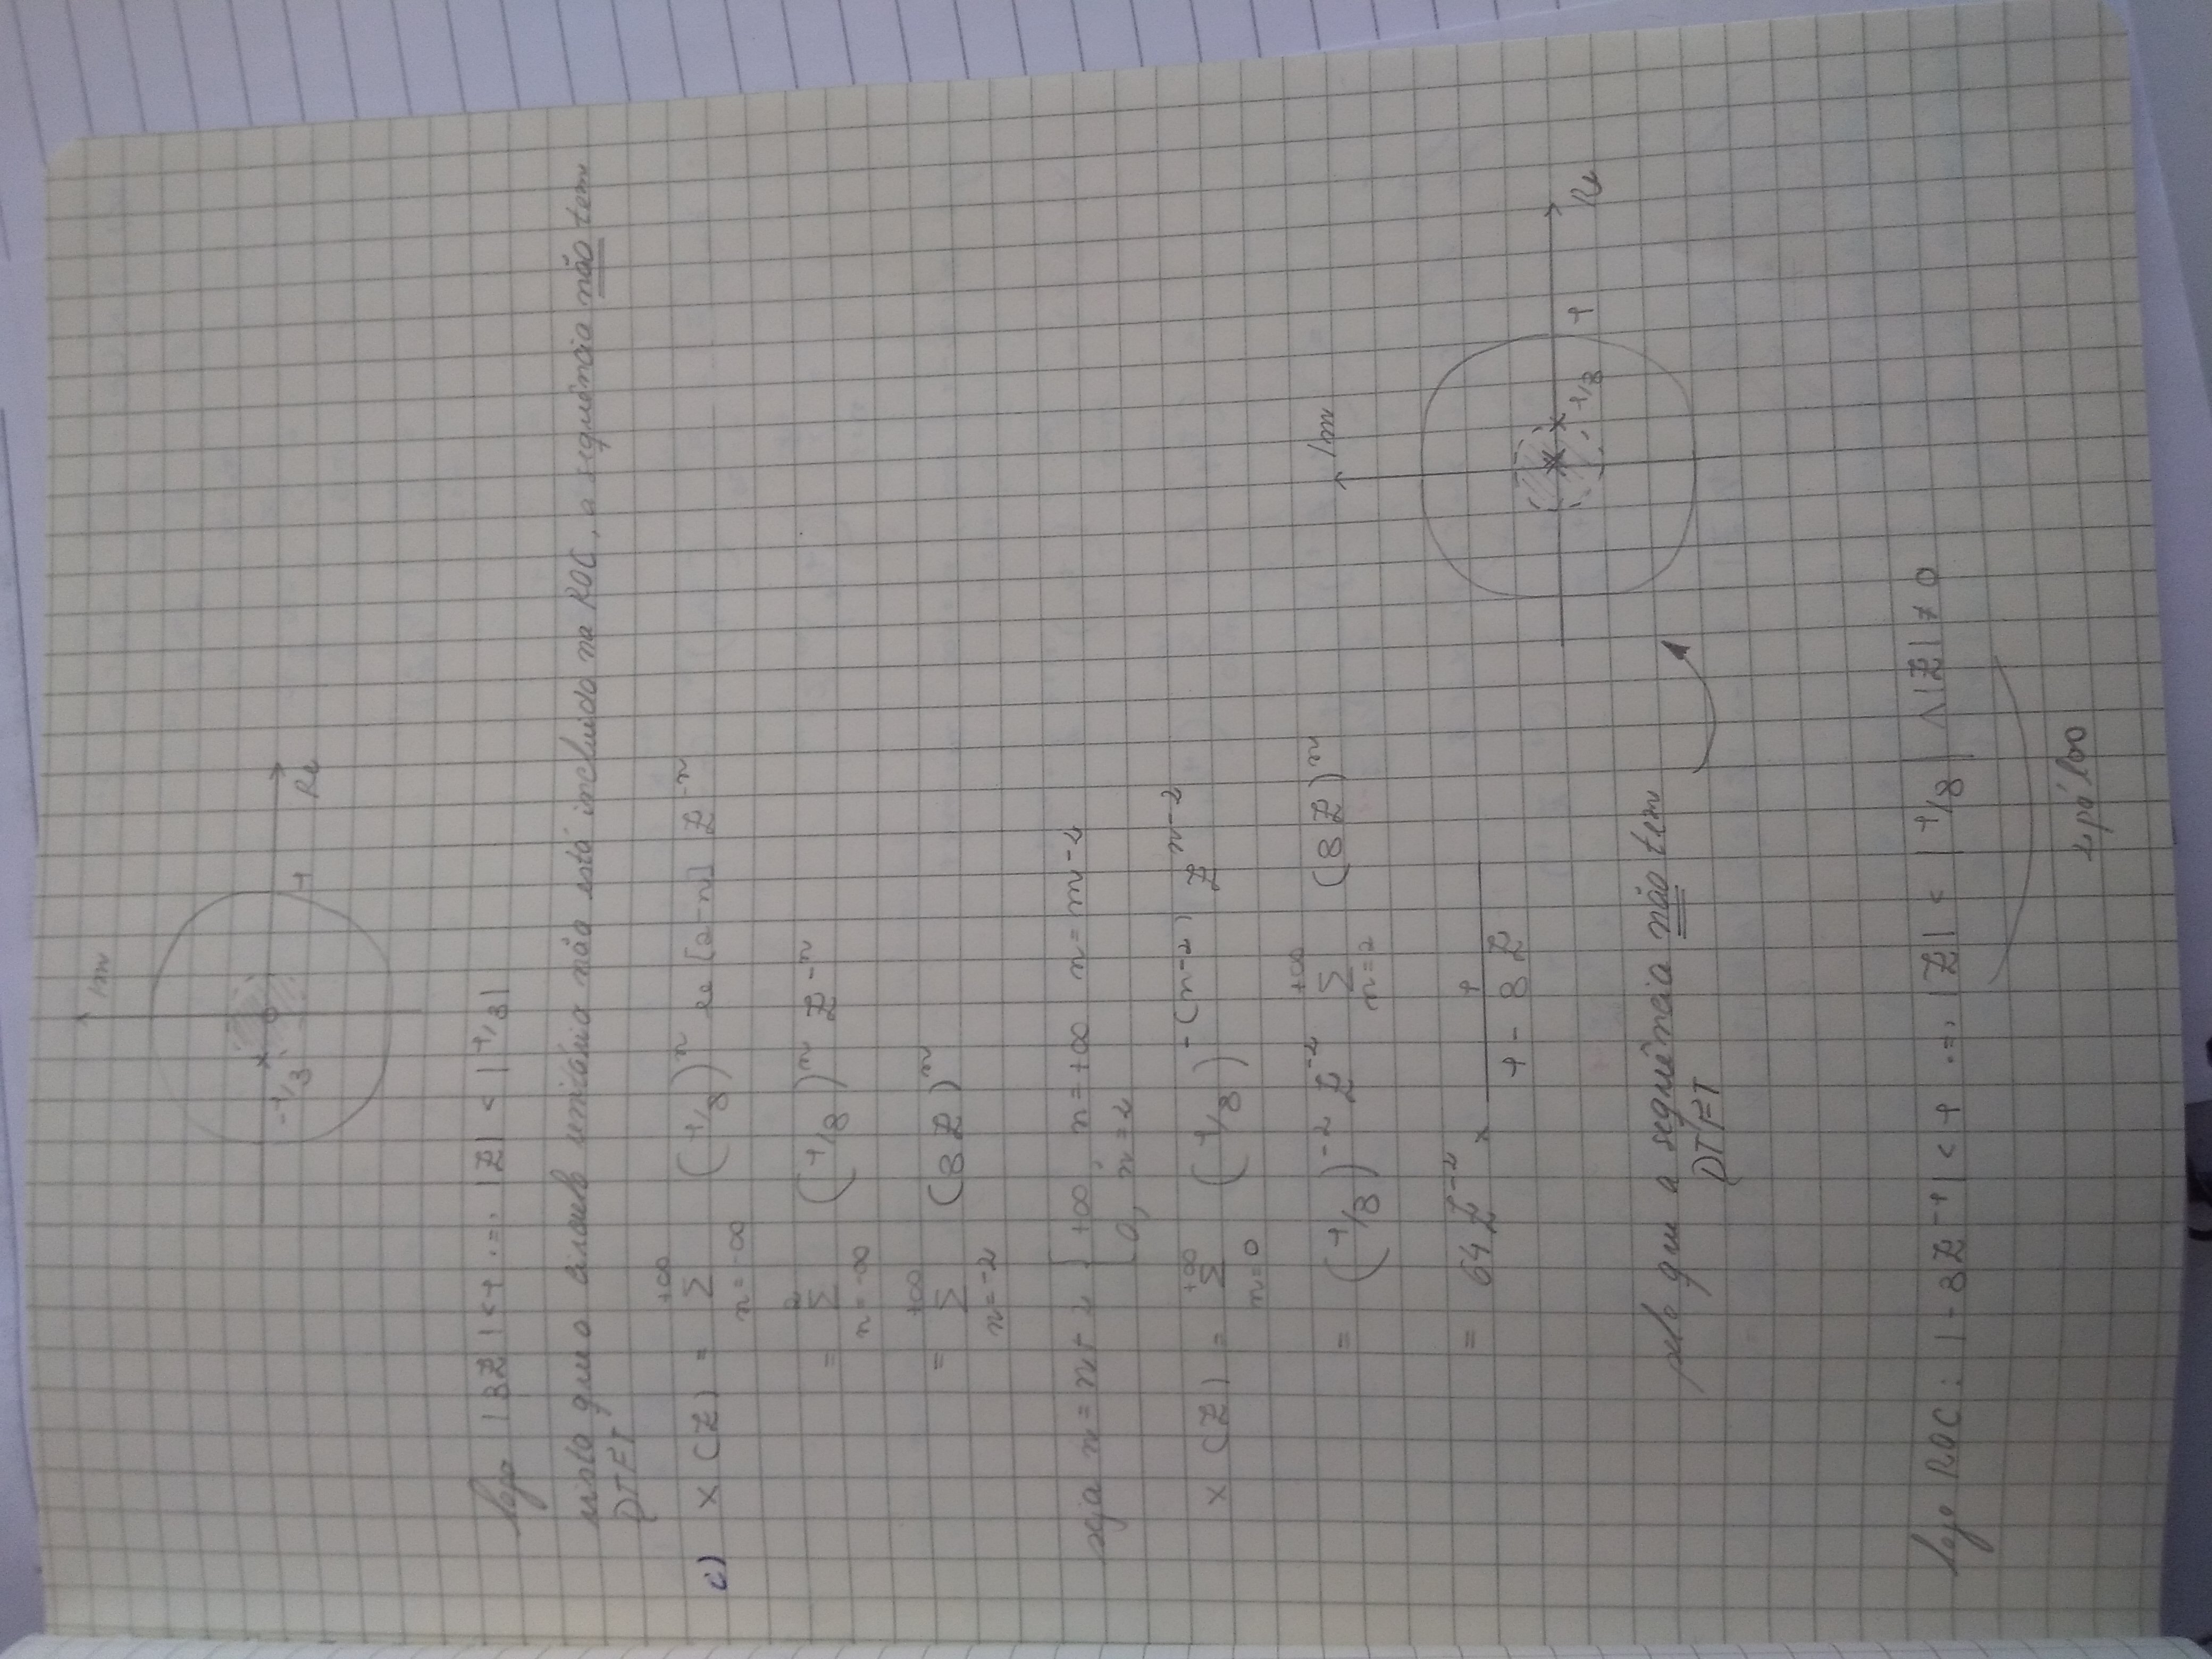 Im
-1/3
1
Re
logo |3Z| < 1 .=. |Z| < |1/3|
visto que o círculo unitário não está incluído na ROC, a sequência não tem
DTFT
c) X(Z) = Σ_{n=-∞}^{+∞} (1/8)^n u[2-n] Z^{-n}
= Σ_{n=-∞}^{2} (1/8)^n Z^{-n}
= Σ_{n=-2}^{+∞} (8Z)^n
seja n = n+2 { +∞, n=+∞ n = m-2
0, n=2
X(Z) = Σ_{n=0}^{+∞} (1/8)^{-(n-2)} Z^{n-2}
= (1/8)^{-2} Z^{-2} Σ_{n=2}^{+∞} (8Z)^n
Im
= 64 Z^{-2} × 1/(1 - 8Z)
1/8
1
Re
pelo que a sequência não tem
DTFT
logo ROC: |-8Z^{-1}| < 1 .=. |Z| < |1/8| ∧ |Z| ≠ 0
pólos